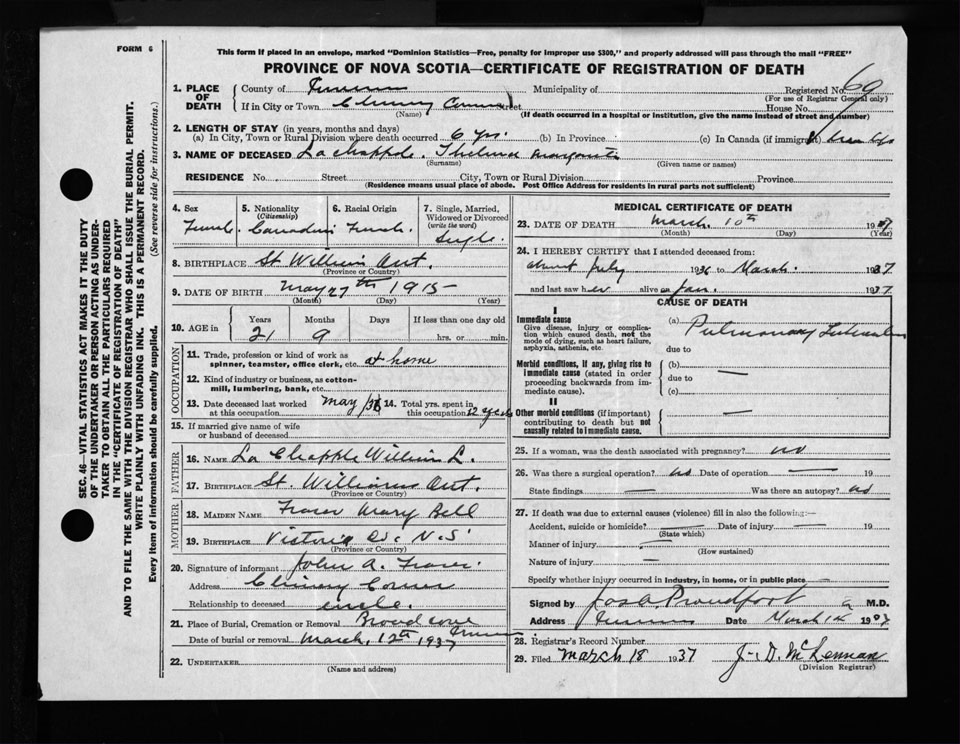 FORM 6
This form if placed in an envelope, marked "Dominion Statistics—Free, penalty for improper use $300," and properly addressed will pass through the mail "FREE"
PROVINCE OF NOVA SCOTIA—CERTIFICATE OF REGISTRATION OF DEATH
SEC. 46—VITAL STATISTICS ACT MAKES IT THE DUTY
OF THE UNDERTAKER OR PERSON ACTING AS UNDER-
TAKER TO OBTAIN ALL THE PARTICULARS REQUIRED
IN THE "CERTIFICATE OF REGISTRATION OF DEATH"
AND TO FILE THE SAME WITH THE DIVISION REGISTRAR WHO SHALL ISSUE THE BURIAL PERMIT.
WRITE PLAINLY WITH UNFADING INK. THIS IS A PERMANENT RECORD.
Every item of information should be carefully supplied. (See reverse side for instructions.)
1. PLACE OF DEATH
County of Municipality of Registered No. 69
(For use of Registrar General only)
If in City or Town Street House No.
(Name) (If death occurred in a hospital or institution, give the name instead of street and number)
2. LENGTH OF STAY (in years, months and days)
(a) In City, Town or Rural Division where death occurred 6 yrs. (b) In Province (c) In Canada (if immigrant)
3. NAME OF DECEASED La chapple. Thelma Margarite
(Surname) (Given name or names)
RESIDENCE No. Street City, Town or Rural Division Province
(Residence means usual place of abode. Post Office Address for residents in rural parts not sufficient)
4. Sex 5. Nationality (Citizenship) 6. Racial Origin 7. Single, Married, Widowed or Divorced (write the word)
Female. Canadian French. Single.
8. BIRTHPLACE St. William Ont.
(Province or Country)
9. DATE OF BIRTH May 27th 1915
(Month) (Day) (Year)
10. AGE in Years Months Days If less than one day old
21 9 hrs. or min.
OCCUPATION
11. Trade, profession or kind of work as spinner, teamster, office clerk, etc. at home
12. Kind of industry or business, as cotton-mill, lumbering, bank, etc.
13. Date deceased last worked at this occupation May /36 14. Total yrs. spent in this occupation 12 years
15. If married give name of wife or husband of deceased
FATHER
16. NAME La Chapple William L.
17. BIRTHPLACE St. Williams Ont.
(Province or Country)
MOTHER
18. MAIDEN NAME Fraser Mary Bell
19. BIRTHPLACE Victoria Co. N.S.
(Province or Country)
20. Signature of informant John A. Fraser.
Address Chimney Corner
Relationship to deceased uncle.
21. Place of Burial, Cremation or Removal Broad cove
Date of burial or removal March, 12th 1937
22. UNDERTAKER
(Name and address)
MEDICAL CERTIFICATE OF DEATH
23. DATE OF DEATH March. 10th 1937
(Month) (Day) (Year)
24. I HEREBY CERTIFY that I attended deceased from:
about July 1936 to March. 1937
and last saw her alive on Jan. 1937
CAUSE OF DEATH
I
Immediate cause
Give disease, injury or complication which caused death, not the mode of dying, such as heart failure, asphyxia, asthenia, etc.
(a) Pulmonary
due to
Morbid conditions, if any, giving rise to immediate cause (stated in order proceeding backwards from immediate cause).
(b) —
due to
(c)
II
Other morbid conditions (if important) contributing to death but not causally related to immediate cause. —
25. If a woman, was the death associated with pregnancy? no
26. Was there a surgical operation? no Date of operation — 19
State findings — Was there an autopsy? no
27. If death was due to external causes (violence) fill in also the following:—
Accident, suicide or homicide? — Date of injury — 19
(State which)
Manner of injury —
(How sustained)
Nature of injury —
Specify whether injury occurred in industry, in home, or in public place —
Signed by Jas A. Proudfoot M.D.
Address Date March 1937
28. Registrar's Record Number
29. Filed March 18 1937 J. D. McLennan
(Division Registrar)